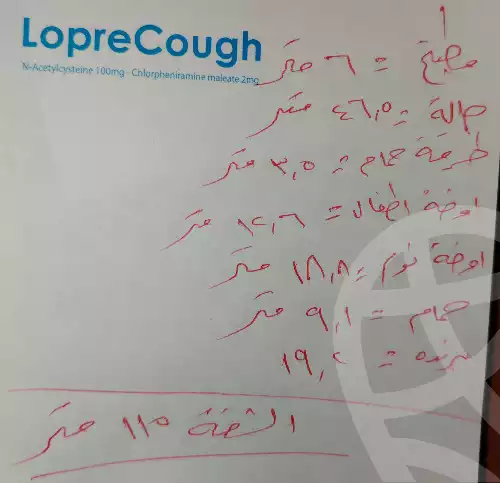 LopreCough
N-Acetylcysteine 100mg - Chlorpheniramine maleate 2mg
مطبخ = ٦ متر
صالة = ٤٦,٥ متر
طرقة حمام = ٣,٥ متر
اوضة اطفال = ١٢,٦ متر
اوضة نوم = ١٨,٨ متر
حمام = ٩,١ متر
= ١٩,٢
الشقة ١١٥ متر